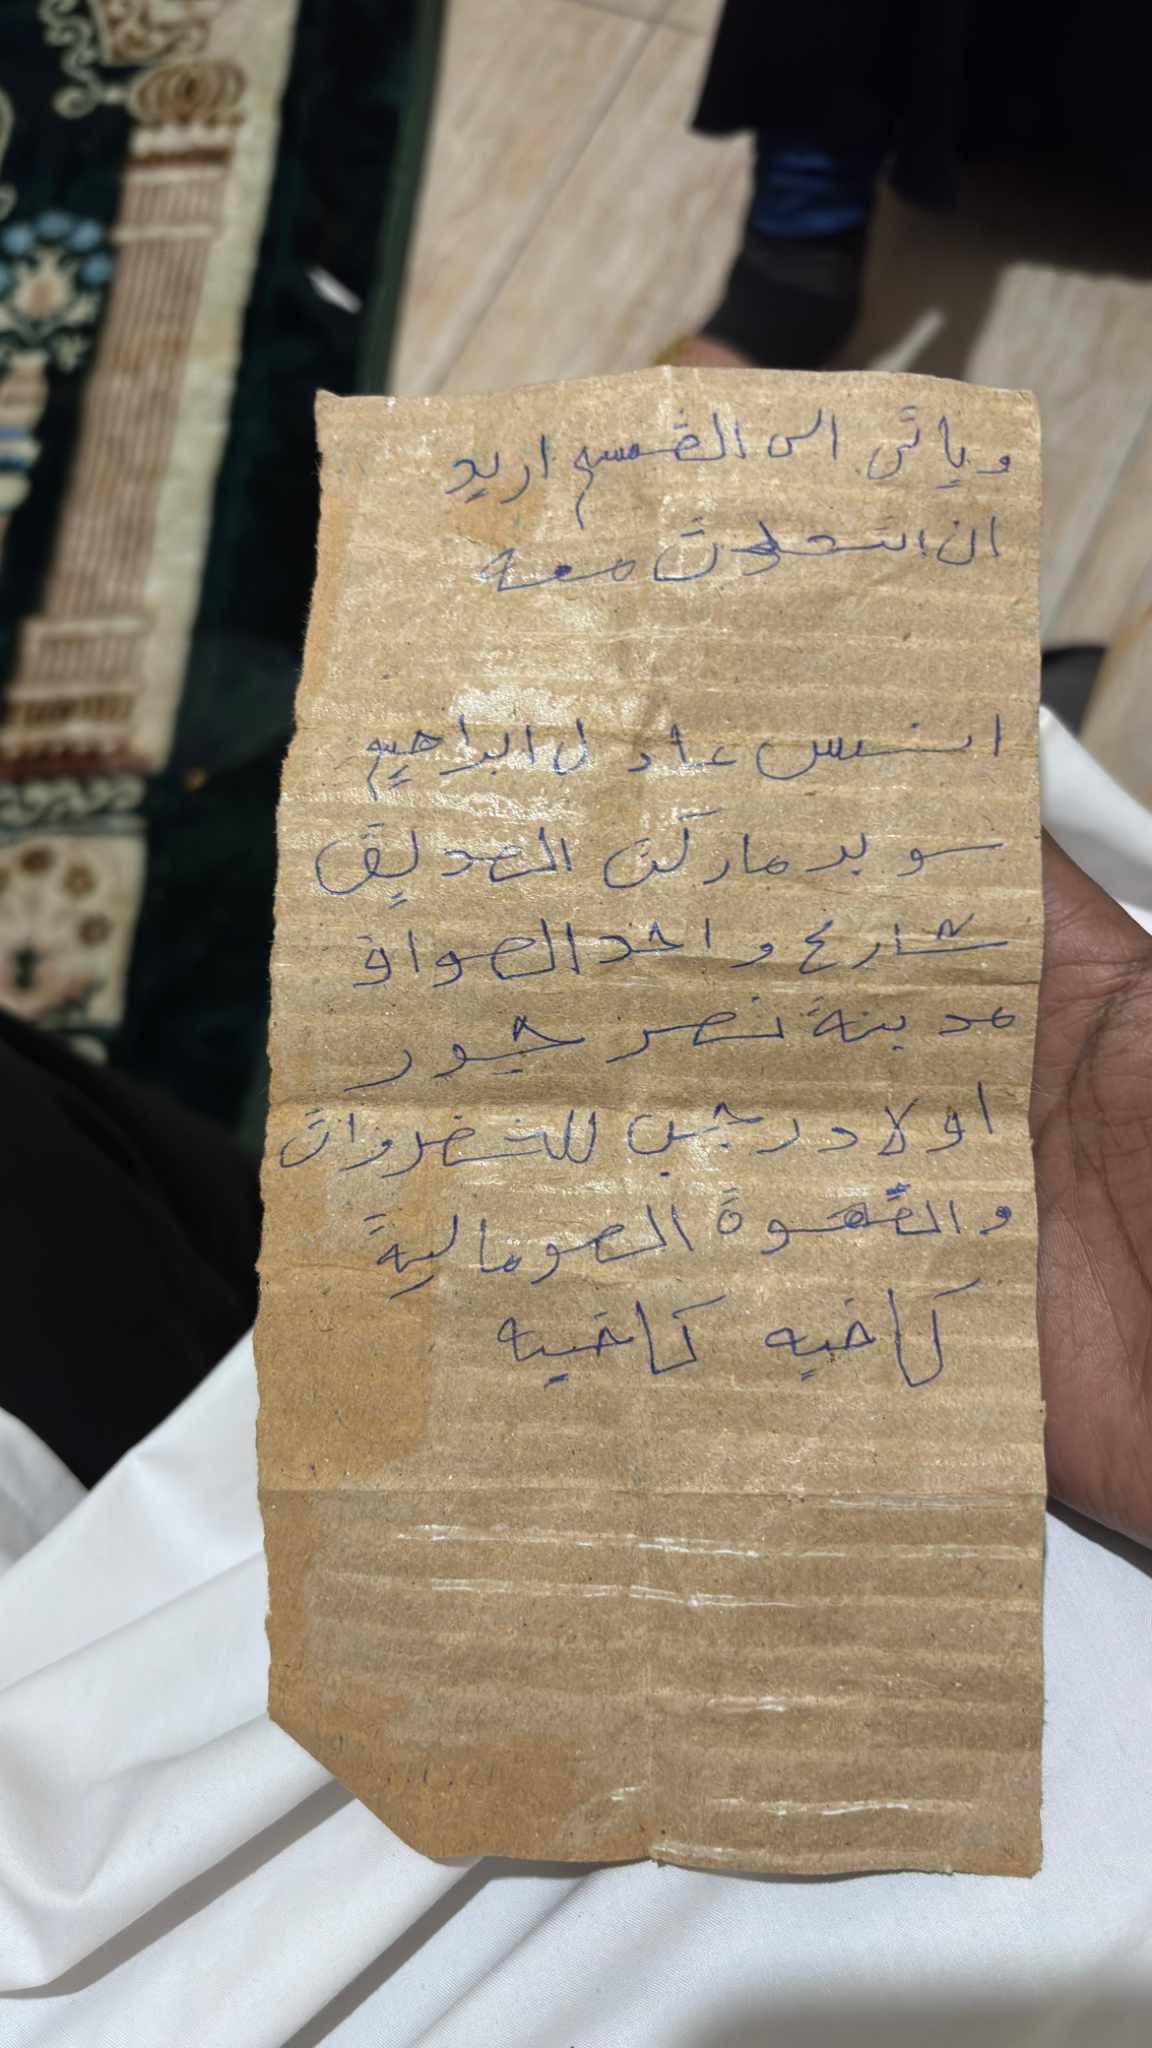 وياتى الى القسم اريد
ان اتحدث معه
انس عادل ابراهيم
سوبر ماركت الصديق
شارع واحد الصواف
مدينة نصر جور
اولاد رجب للخضروات
والقهوة الصومالية
كافيه كافيه